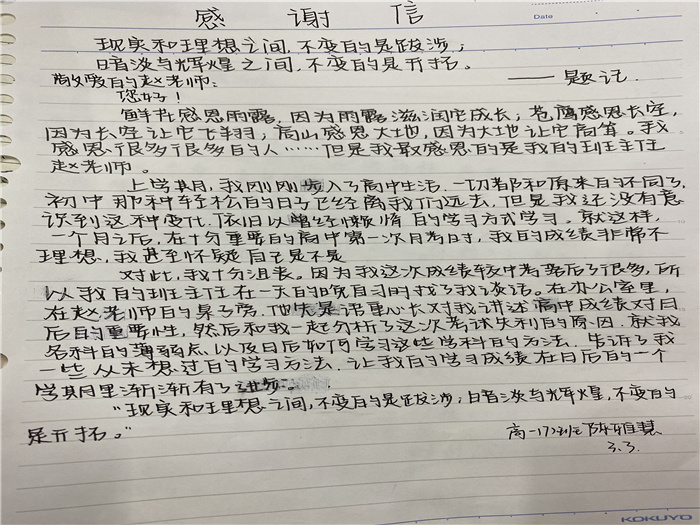 感 谢 信
Date
现实和理想之间,不变的是跋涉;
暗淡与辉煌之间,不变的是开拓。
——题记
敬爱的赵老师:
您好!
鲜花感恩雨露,因为雨露滋润它成长;苍鹰感恩长空,
因为长空让它飞翔;高山感恩大地,因为大地让它高耸。我
感恩很多很多的人……但是我最感恩的是我的班主任
赵老师。
上学期,我刚刚步入了高中生活,一切都和原来的不同了,
初中那种轻松的日子已经离我们远去,但是我还没有意
识到这种变化,依旧以曾经懒惰的学习方式学习。就这样,
一个月之后,在十分重要的高中第一次月考时,我的成绩非常不
理想,我甚至怀疑自己是不是
对此,我十分沮丧。因为我这次成绩较中考落后了很多,所
以我的班主任在一天的晚自习时找了我谈话。在办公室里,
在赵老师的桌子旁,他先是语重心长对我讲述高中成绩对日
后的重要性,然后和我一起分析了这次考试失利的原因,就我
各科的薄弱点以及日后如何学习这些学科的方法,告诉了我
一些从未想过的学习方法,让我的学习成绩在日后的一个
学期里渐渐有了进步。
“现实和理想之间,不变的是跋涉;暗淡与辉煌,不变的
是开拓。”
高一17班陈雅慧
3.3.
KOKUYO